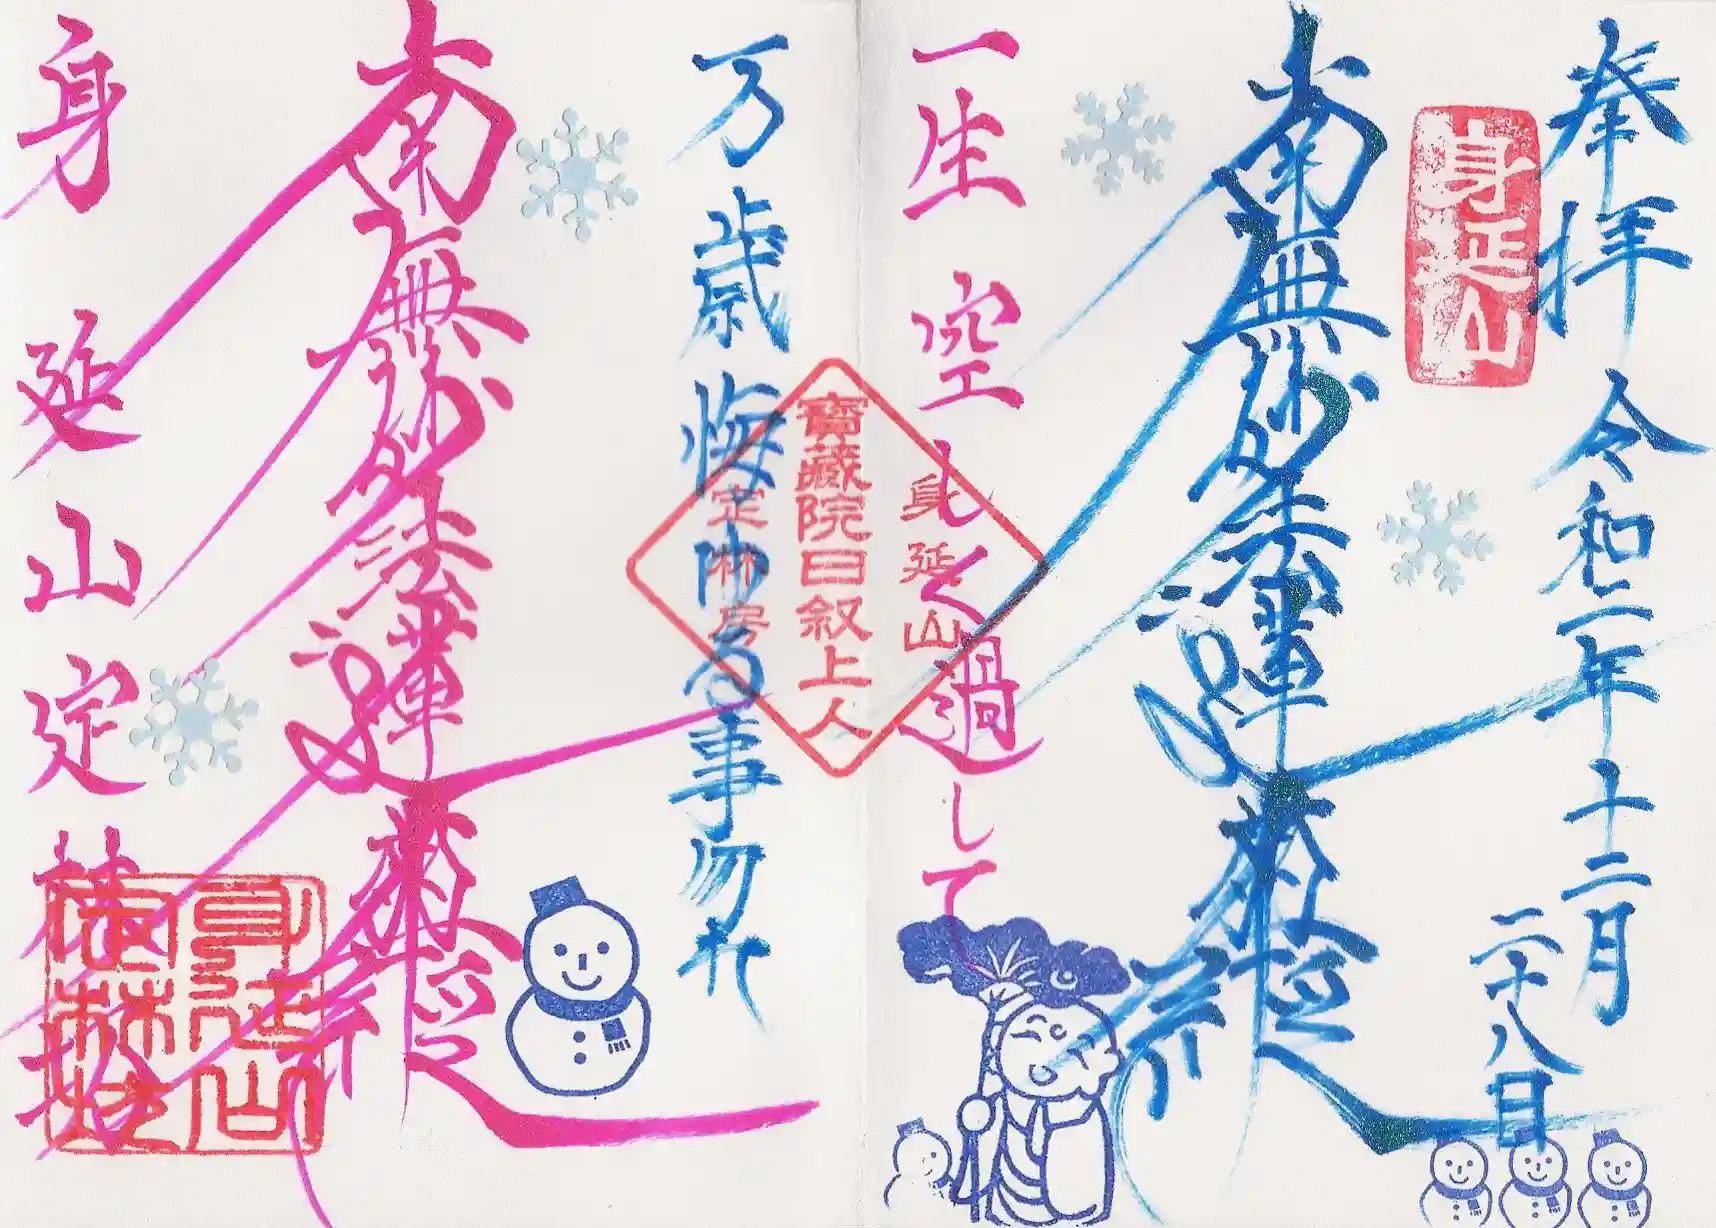 奉拝 令和二年十二月
二十八日
身延山
南無妙法蓮華経
一生空しく過して
身延山
寳藏院日叙上人
定林房
万歳悔ゆる事勿れ
南無妙法蓮華経
身延山定林坊
身延山
定林坊